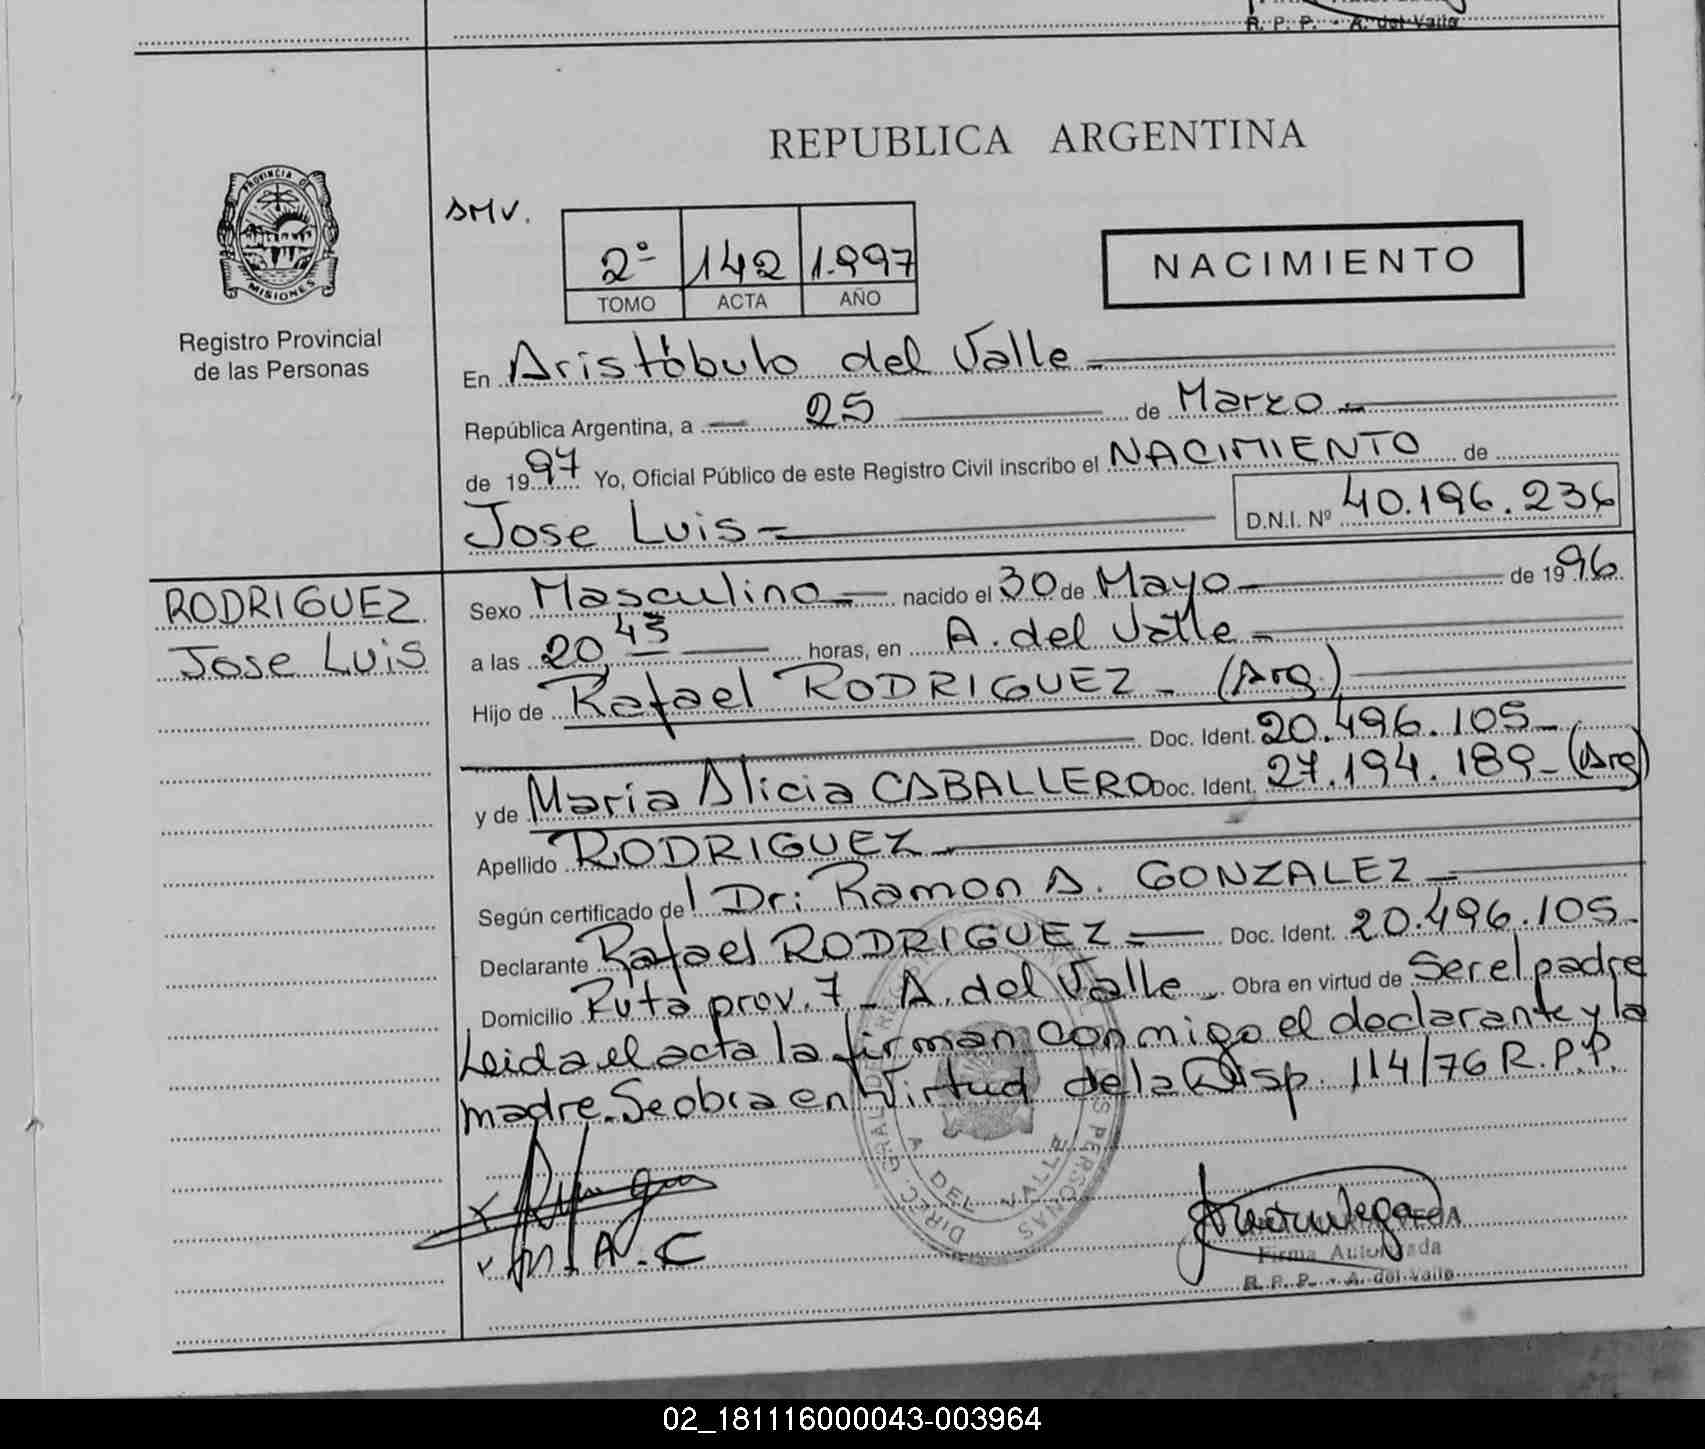 R. P. P. - A. del Valle
REPUBLICA ARGENTINA
PROVINCIA D
MISIONES
Registro Provincial
de las Personas
SMV.
2º 142 1.997
TOMO ACTA AÑO
NACIMIENTO
En Aristóbulo del Valle
República Argentina, a 25 de Marzo
de 1997 Yo, Oficial Público de este Registro Civil inscribo el NACIMIENTO de
Jose Luis D.N.I. Nº 40.196.236
RODRIGUEZ
Jose Luis
Sexo Masculino nacido el 30 de Mayo de 1996
a las 20,43 horas, en A. del Valle
Hijo de Rafael RODRIGUEZ - (Arg.)
Doc. Ident. 20.496.105-
y de María Alicia CABALLERO Doc. Ident. 27.194.189-(Arg)
Apellido RODRIGUEZ
Según certificado del Dr: Ramon A. GONZALEZ
Declarante Rafael RODRIGUEZ Doc. Ident. 20.496.105-
Domicilio Ruta prov. 7 - A. del Valle - Obra en virtud de Ser el padre
Leida el acta la firman conmigo el declarante y la
madre. Se obra en Virtud de la Disp. 114/76 R.P.P.
A DEL VALLE
PERSONAS
M.A.C
Firma Autorizada
R. P. P. - A. del Valle
02_181116000043-003964